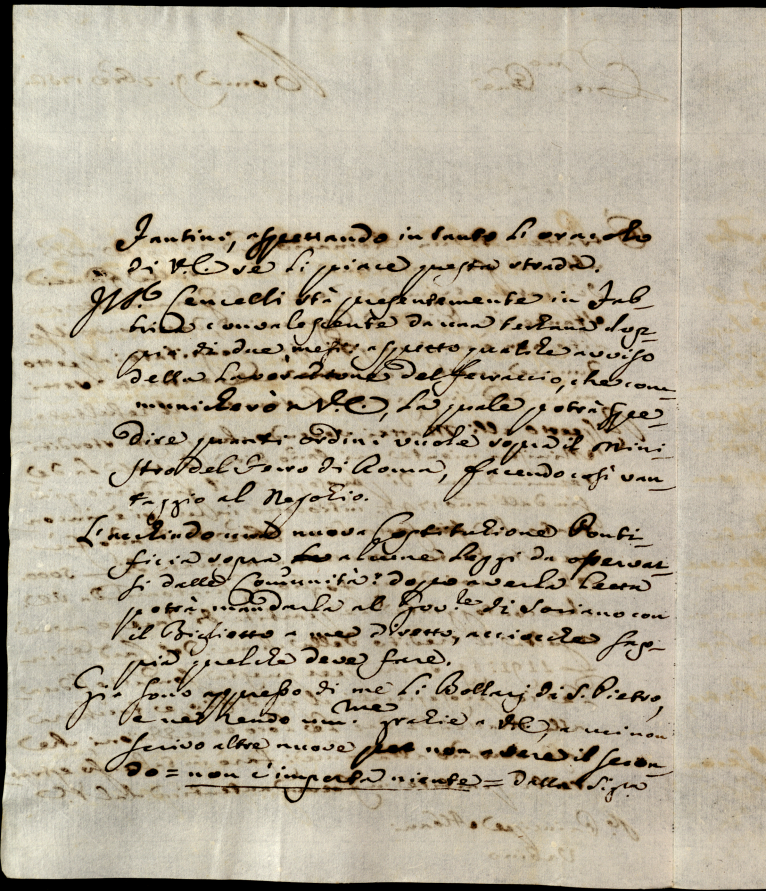 Fantini, aspettando in tanto li oracoli
di V.E. se li piace questa strada.
Il S.r Cencelli stà presentemente in Fab-
brica convalescente da una terzana dop-
pia di due mesi; aspetto qualche avviso
della lavorazione del ferraccio, che com-
municherò a V.E., la quale potrà spe-
dire quanti ordini vuole sopra il Mini-
stro del Forno di Roma, facendo così van-
taggio al Negozio.
Le mando una nuova Costituzione Ponti-
ficia sopra alcune Leggi da osservar-
si dalle Comunità: dopo averla letta
potrà mandarla al Gov.re di Soriano con
il Biglietto a me diretto, acciocche sap-
pia quel che deve fare.
Già sono appresso di me li Bollarj di S. Pietro,
e ne rendo um.me grazie a V.E., a cui non
scrivo altre nuove per non avere il secon-
do = non c'importa niente = dalla Sig.ra